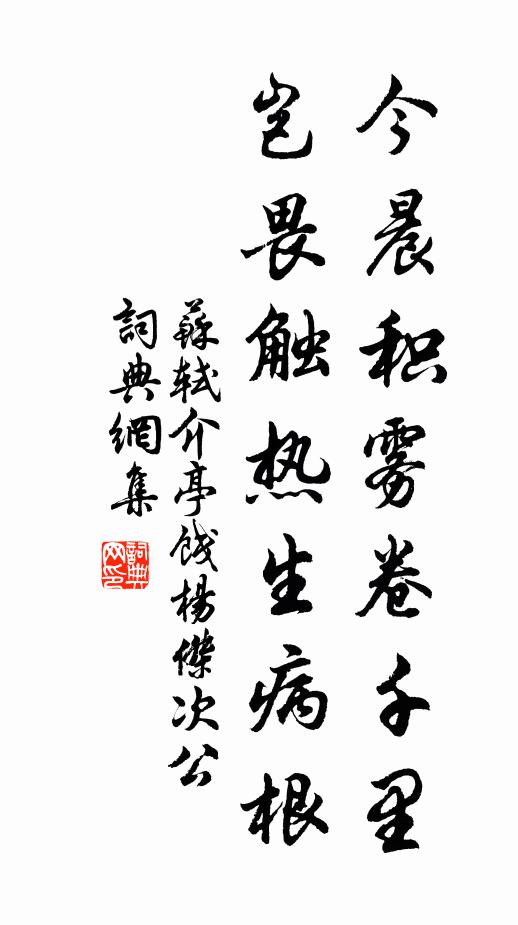 今晨积雾卷千里
岂畏触热生病根
蘇軾介亭餞楊傑次公
詞典網集
詞典網印